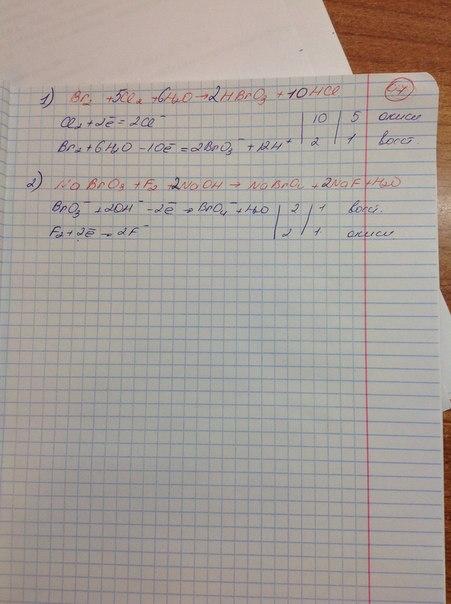 1) Br₂ + 5Cl₂ + 6H₂O → 2HBrO₃ + 10HCl
Cl₂ + 2ē = 2Cl⁻ | 10 | 5 окисл
Br₂ + 6H₂O - 10ē = 2BrO₃⁻ + 12H⁺ | 2 | 1 восст.
2) NaBrO₃ + F₂ + 2NaOH → NaBrO₄ + 2NaF + H₂O
BrO₃⁻ + 2OH⁻ - 2ē → BrO₄⁻ + H₂O | 2 | 1 восст.
F₂ + 2ē → 2F⁻ | 2 | 1 окисл